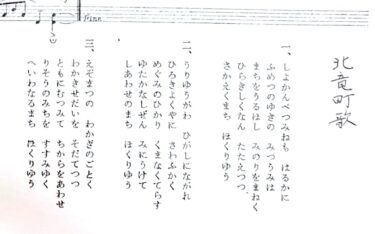 Fine
北竜町歌
一、しよかんべつみねも はるかに
ふめつのゆきの みづうみは
まちをうるほし みのりをまねく
ひらきしくなん たたえつつ
さかえくまち ほくりゆう
二、うりゆうがわ ひがしにながれ
ひろきよくやに さわふかく
めぐみのひかり くまなくてらす
ゆたかなしぜん みにうけて
しあわせのまち ほくりゆう
三、えぞまつの わかぎのごとく
わかきせだいを そだてつつ
ともにむつみて ちからをあわせ
りそうのみちを すすみゆく
へいわなるまち ほくりゆう